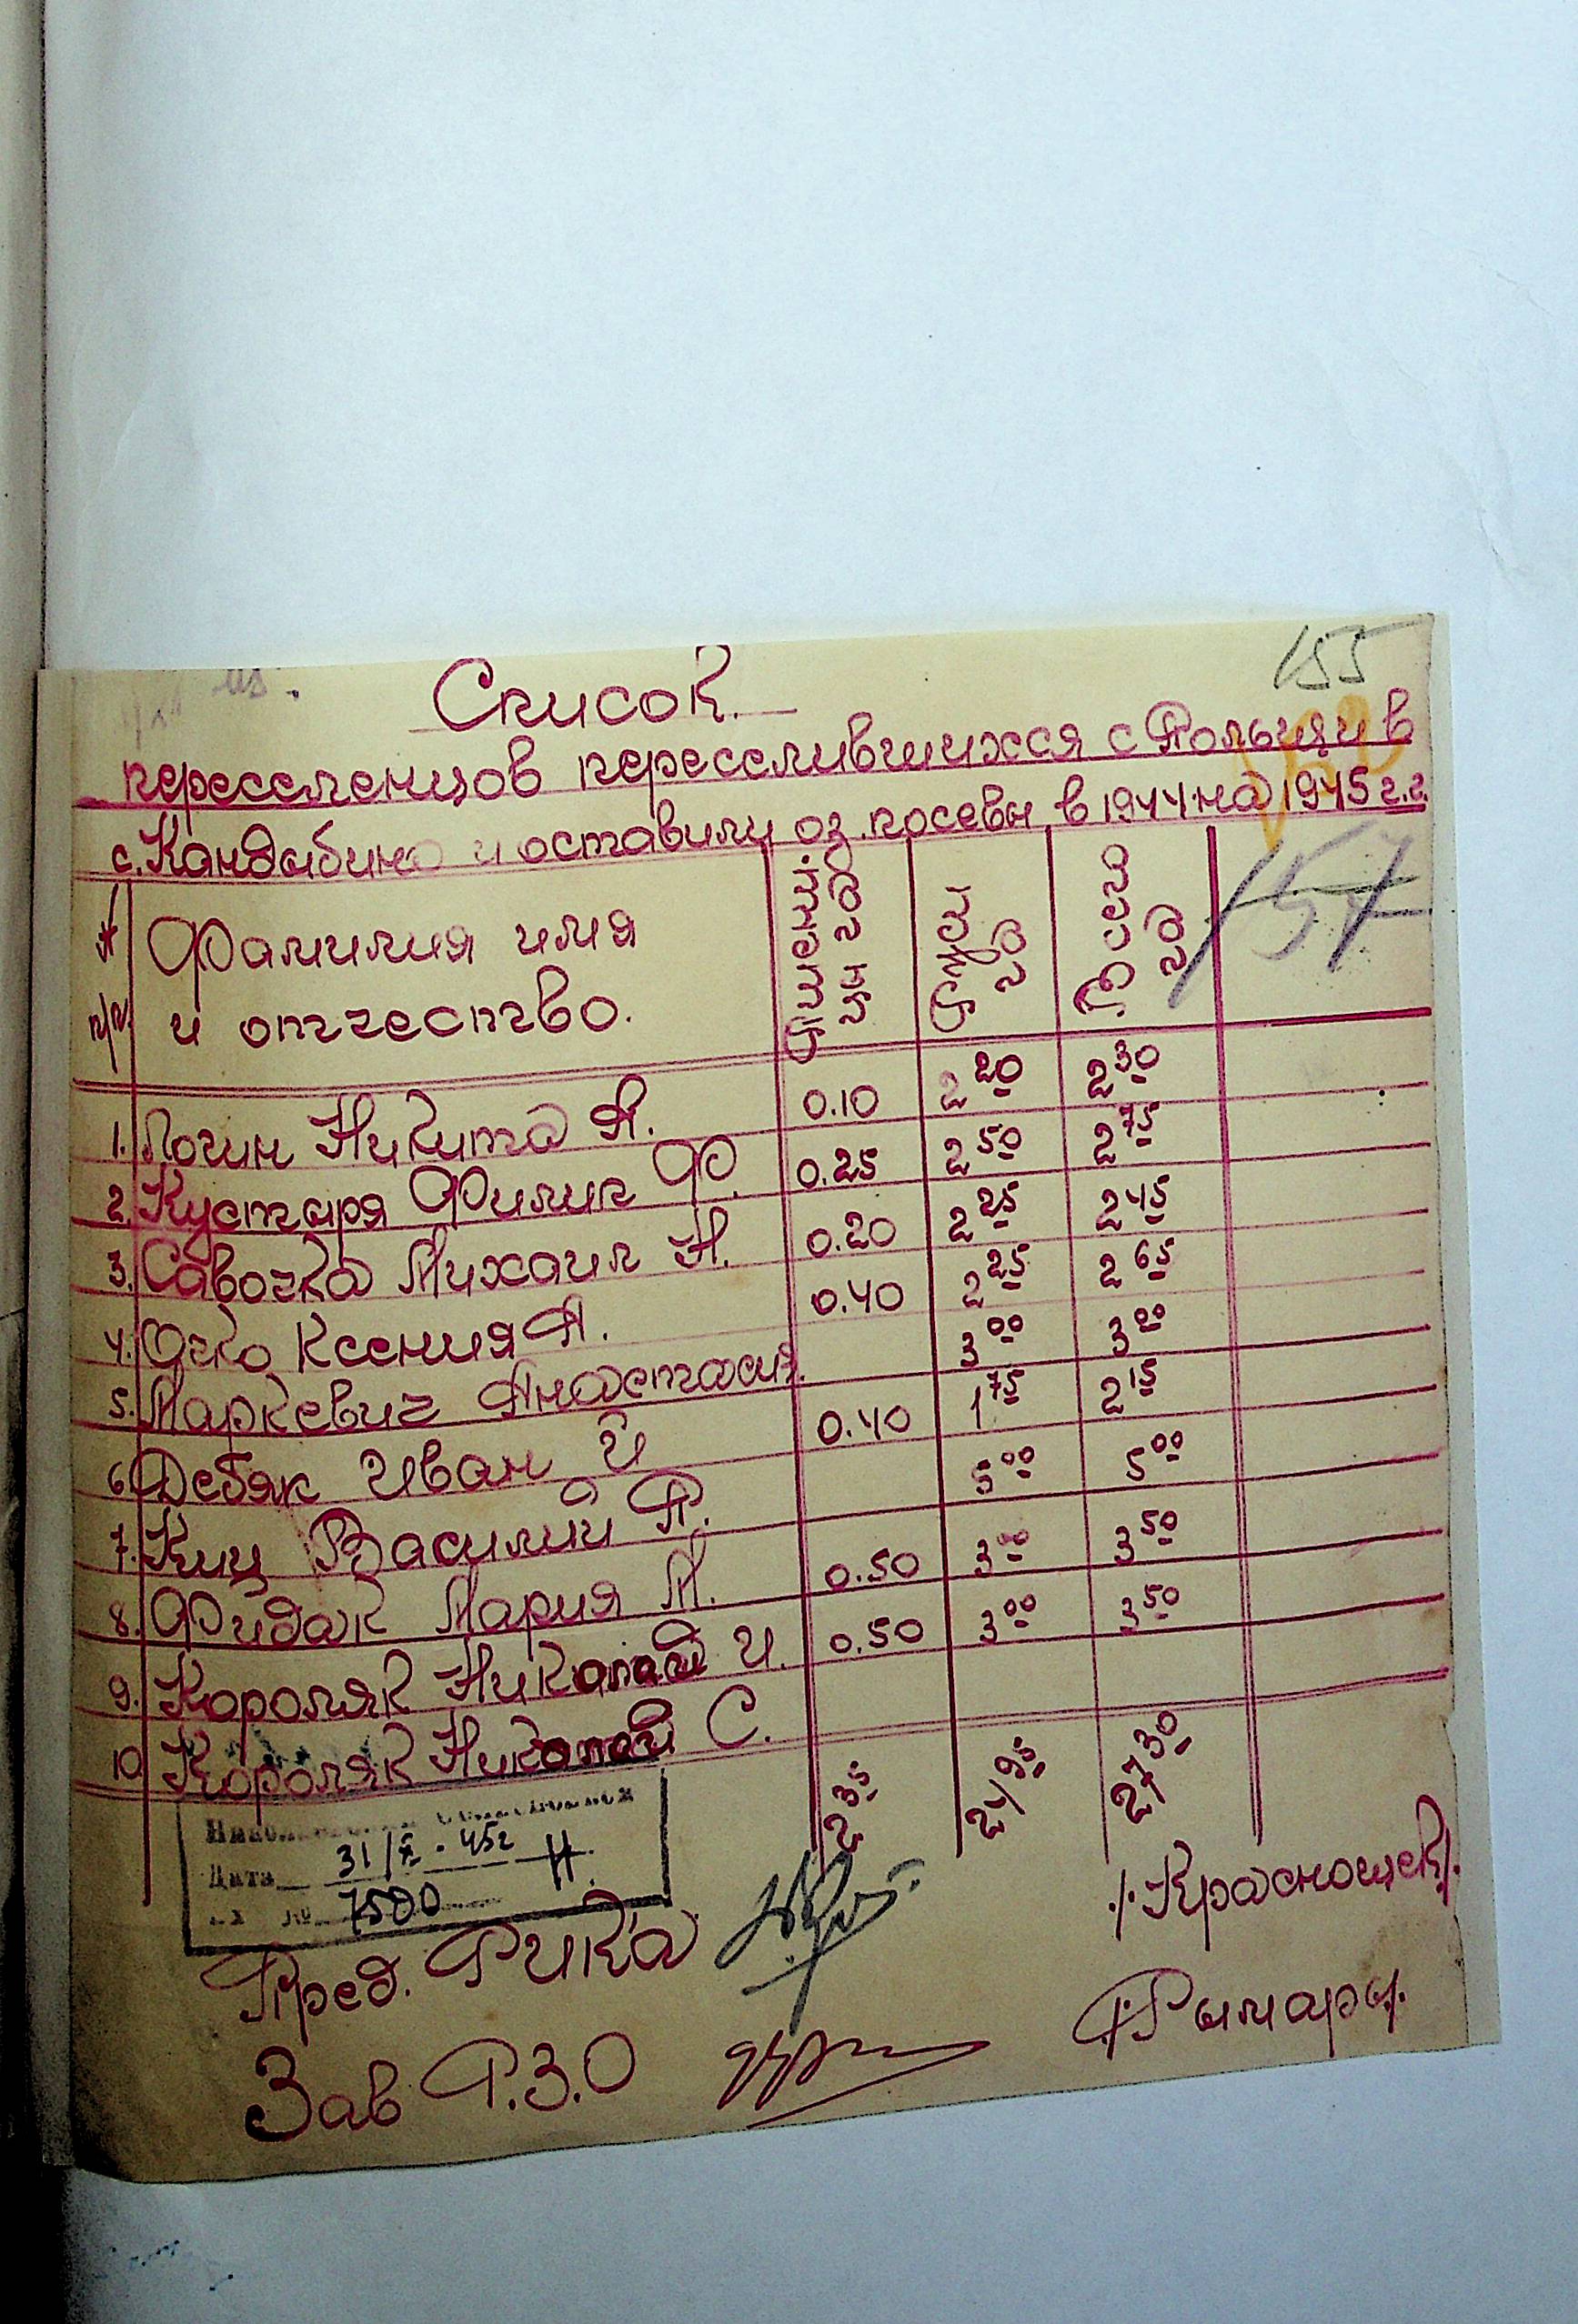 155
Список.
переселенцов переселившихся с Польщи в
с. Кандыбино и оставили оз. посевы в 1944 на 1945 г.г.
157
№ п/п. Фамилия имя и отчество. Пшениц. га Ржи га Всего га
1. Логин Никита А. 0.10 2 20 2 30
2. Кустыря Филип Ф. 0.25 2 50 2 75
3. Савочка Михаил Н. 0.20 2 25 2 45
4. Очко Ксения А. 0.40 2 25 2 65
5. Маркевич Анастасия. 3 00 3 00
6. Дебяк Иван И 0.40 1 75 2 15
7. Киц Василий П. 5 00 5 00
8. Фидак Мария М. 0.50 3 00 3 50
9. Короляк Николай И. 0.50 3 00 3 50
10. Короляк Николай С.
2 35 24 95 27 30
Дата 31/X - 45г
№ 7500
Пред. Рика /.Краснощек/.
Зав Р.З.О /.Рымарь/.